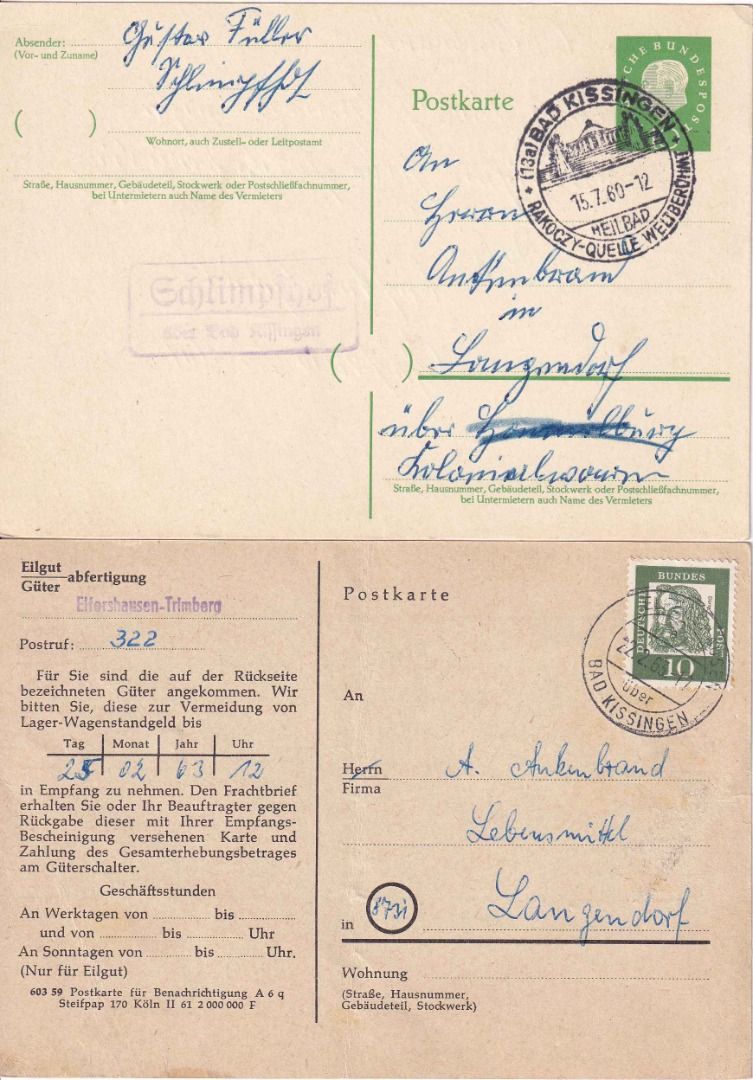 Absender:
(Vor- und Zuname)
Gustav Füller
Schlimpfhof
( )
Wohnort, auch Zustell- oder Leitpostamt
Straße, Hausnummer, Gebäudeteil, Stockwerk oder Postschließfachnummer,
bei Untermietern auch Name des Vermieters
Schlimpfhof
über Bad Kissingen
Postkarte
DEUTSCHE BUNDESPOST
(13a) BAD KISSINGEN
15.7.60-12
HEILBAD
RAKOCZY-QUELLE WELTBERÜHMT
An
Herrn
Ankenbrand
in
( ) Langendorf
über Hammelburg
Kolonialwaren
Straße, Hausnummer, Gebäudeteil, Stockwerk oder Postschließfachnummer,
bei Untermietern auch Name des Vermieters
Eilgut
Güter abfertigung
Elfershausen-Trimberg
Postruf: 322
Für Sie sind die auf der Rückseite
bezeichneten Güter angekommen. Wir
bitten Sie, diese zur Vermeidung von
Lager-Wagenstandgeld bis
Tag Monat Jahr Uhr
25 02 63 12
in Empfang zu nehmen. Den Frachtbrief
erhalten Sie oder Ihr Beauftragter gegen
Rückgabe dieser mit Ihrer Empfangs-
Bescheinigung versehenen Karte und
Zahlung des Gesamterhebungsbetrages
am Güterschalter.
Geschäftsstunden
An Werktagen von bis
und von bis Uhr
An Sonntagen von bis Uhr.
(Nur für Eilgut)
603 59 Postkarte für Benachrichtigung A 6 q
Steifpap 170 Köln II 61 2 000 000 F
Postkarte
DEUTSCHE BUNDESPOST
10
über
BAD KISSINGEN
An
Herrn A. Ankenbrand
Firma
Lebensmittel
in 8731 Langendorf
Wohnung
(Straße, Hausnummer,
Gebäudeteil, Stockwerk)